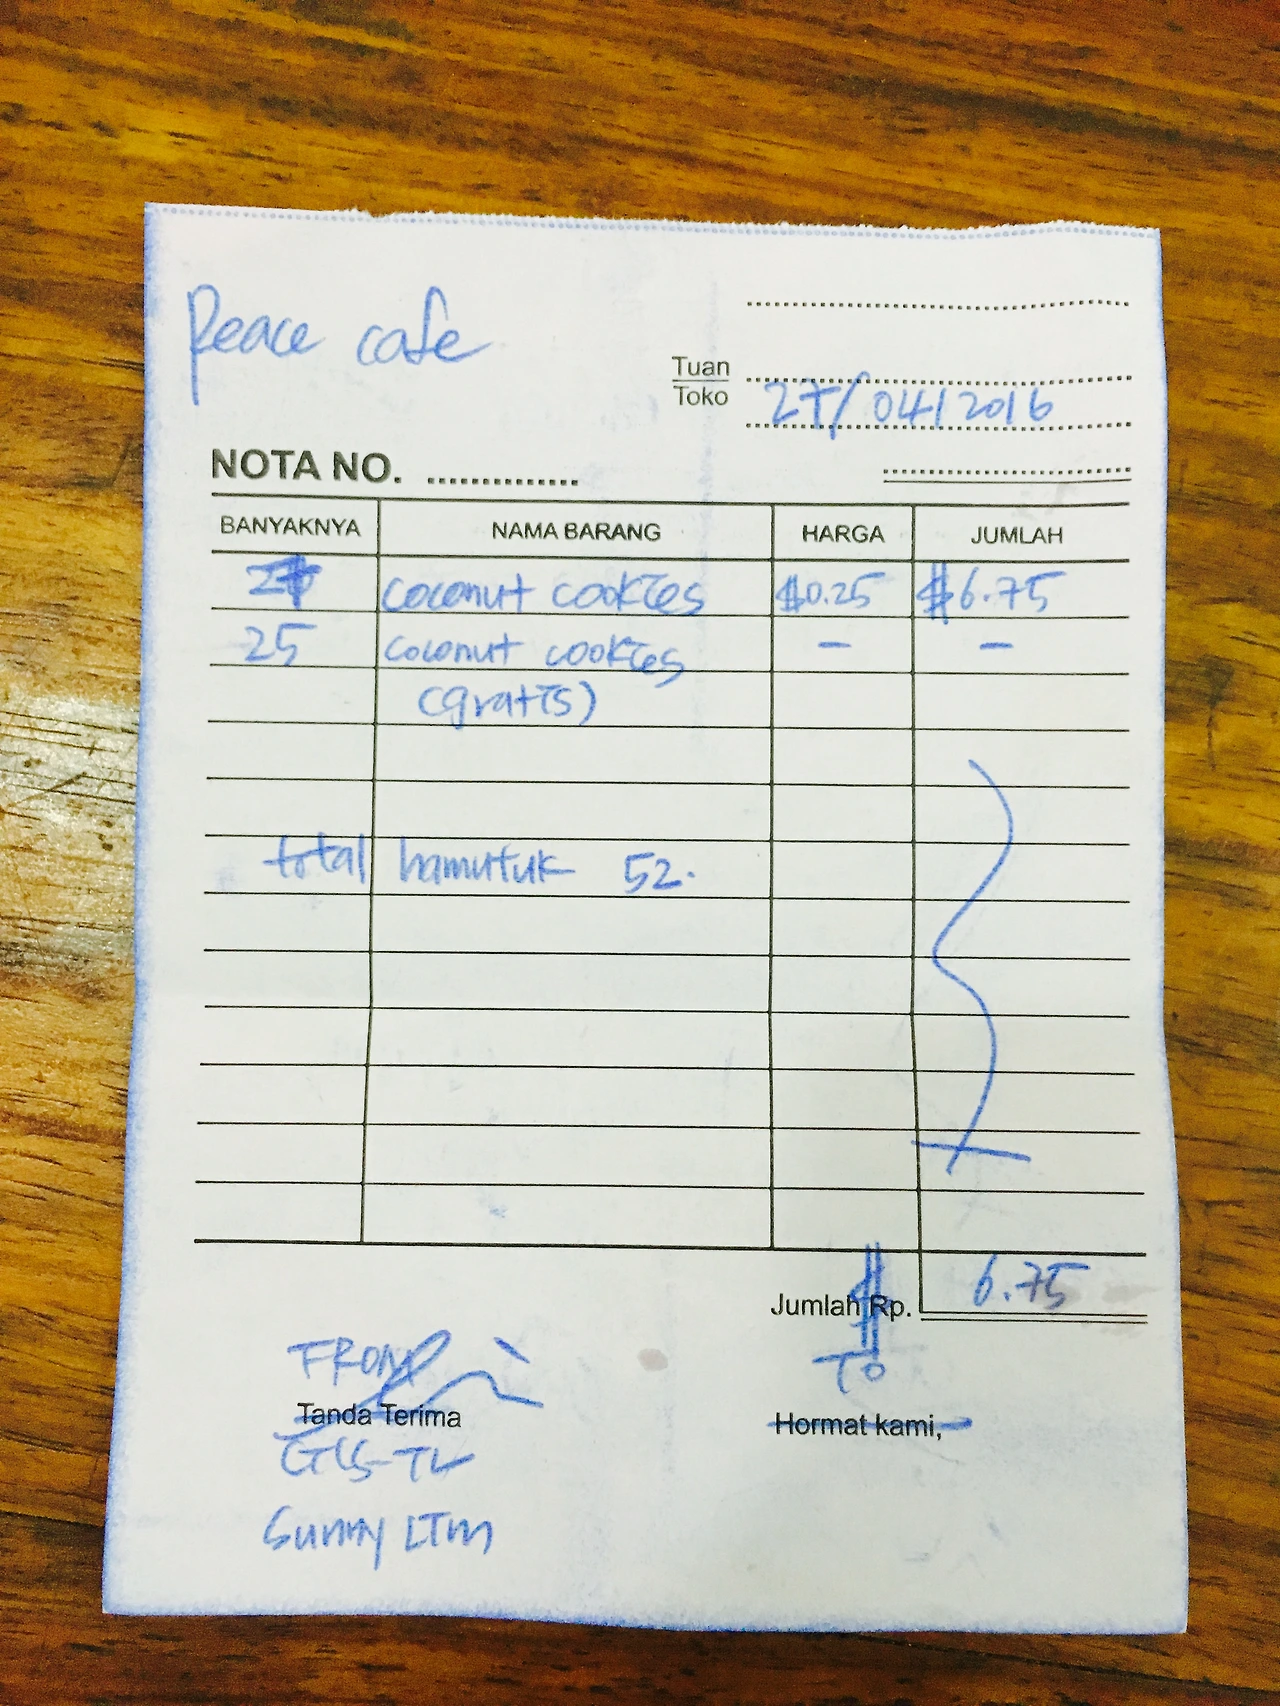 Peace cafe
Tuan
Toko
27/04/2016
NOTA NO. ..............
BANYAKNYA NAMA BARANG HARGA JUMLAH
27 coconut cookies $0.25 $6.75
25 coconut cookies - -
(gratis)
total hamutuk 52.
Jumlah Rp. $ 6.75
FROM TO
Tanda Terima Hormat kami,
Sunny LIM